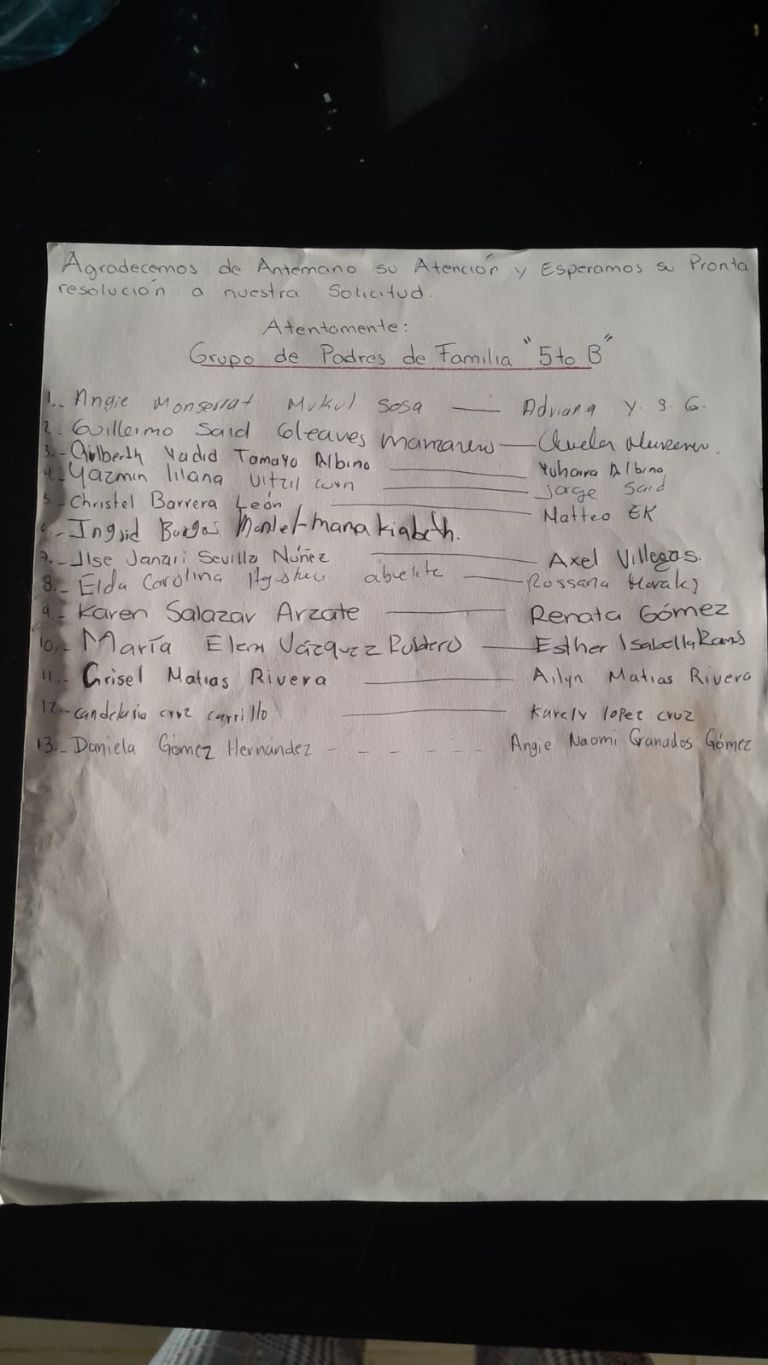 Agradecemos de Antemano su Atención y Esperamos su Pronta
resolución a nuestra Solicitud.
Atentamente:
Grupo de Padres de Familia "5to B"
1.- Angie Monserrat Mukul Sosa — Adriana Y. S. G.
2.- Guillermo Said Gleaves —
3.- Gilberth Yadid Tomayo Albino — Yuhaira Albino
4.- Yazmin liliana Uitzil — Jorge Said
5.- Christel Barrera León — Matteo EK
6.- Ingrid Burgos
7.- Ilse Janari Sevilla Núñez — Axel Villegas.
8.- Elda Carolina — Rossana Morales
9.- Karen Salazar Arzate — Renata Gómez
10.- María Elena Vázquez — Esther Isabella
11.- Grisel Matias Rivera — Ailyn Matias Rivera
12.- candelaria cruz carrillo — Karely lopez cruz
13.- Daniela Gómez Hernández - - - - - Angie Naomi Granados Gómez